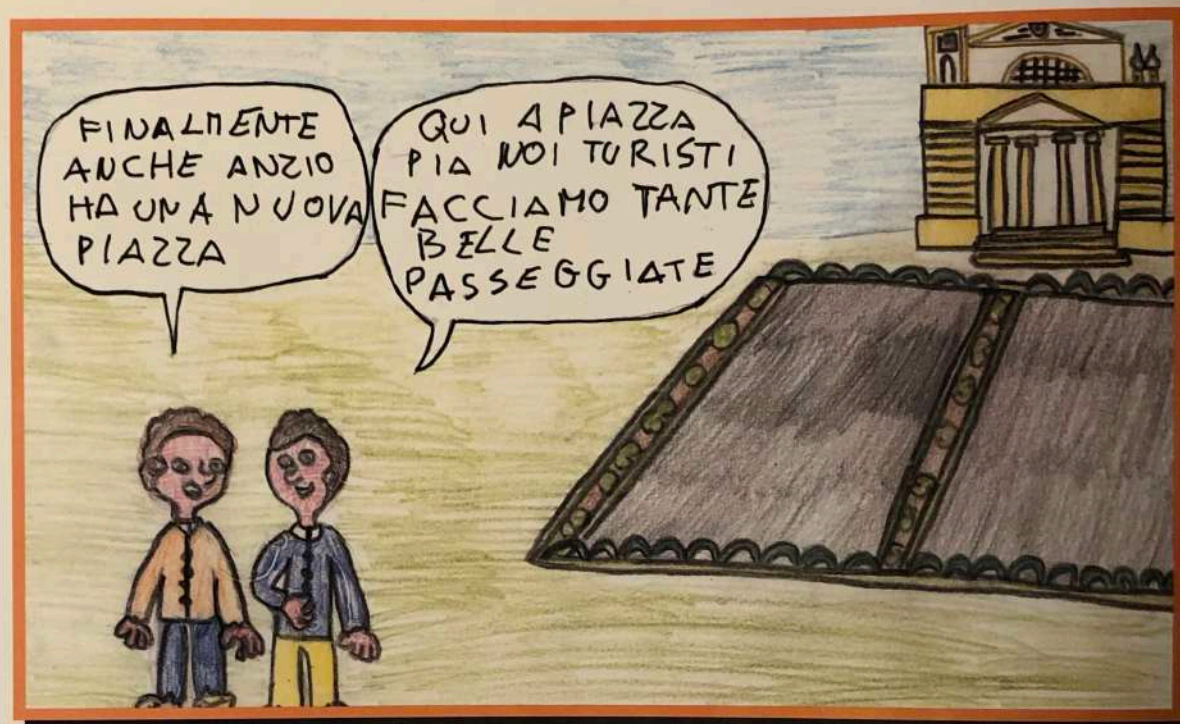 FINALMENTE
ANCHE ANZIO
HA UNA NUOVA
PIAZZA
QUI A PIAZZA
PIA NOI TURISTI
FACCIAMO TANTE
BELLE
PASSEGGIATE